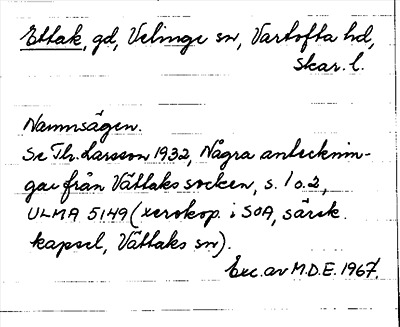 Ettak, gd, Velinge sn, Vartofta hd,
Skar. l.
Namnsägen.
Se Th. Larsson 1932, Några antecknin-
gar från Vättaks socken, s. 1 o. 2,
ULMA 5149 (xerokop. i SOA, särsk.
kapsel, Vättaks sn).
Exc. av M.D.E. 1967.